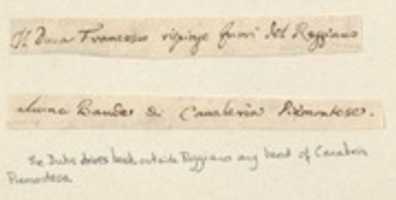 Il Duca Francesco rispinge fuori del Reggiano
alcune Bande di Cavaleria Piemontese.
The Duke drives back outside Reggiano any band of Cavaleria
Piemontese